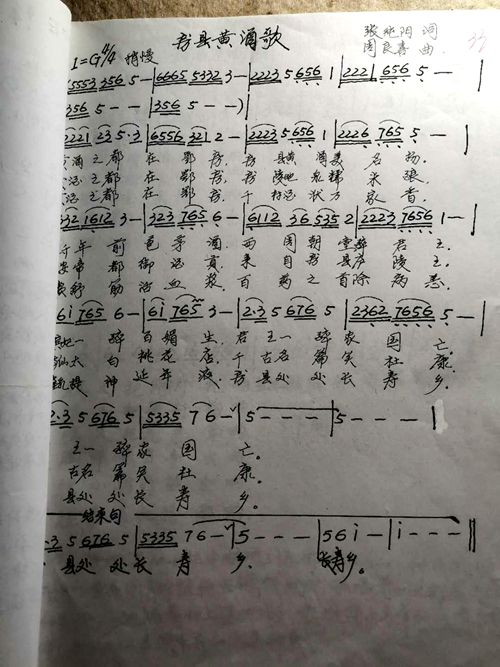 房县黄酒歌
张兆阳 词
周良喜 曲
1=G 4/4 稍慢
5553 356 5 — | 6665 5332 3 — | 2223 5 656 1 | 2221 656 5 — |
356 5 - - | 356 5 - - )|
2221 23 5·3 | 6556 321 2 — | 2223 5 656 1 | 2226 765 5 — |
酒之都 在 鄂房，房 县黄 酒美 名 扬。
之都 在 鄂房，房 陵地 米
之都 在 鄂房，千 家 香。
332 1612 3 — | 323 765 6 — | 6112 36 535 2 | 2223 7656 1 — |
千年 前 包茅酒，西 周朝堂醉 君 王。
都 御酒贡，来 自房县庐 陵 王。
舒 筋活血 浆，百 药之首除 病 恙。
6i 765 6 — | 6i 765 3 — | 2·3 5 676 5 | 2362 7656 5 — |
一 醉 百媚 生，君 王一 醉家 国 亡。
仙太 白 桃花 店，千 古名 篇笑 杜 康。
神 延年 液，房 县处 处长 寿 乡。
2·3 5 676 5 | 5335 7 6 — | 5 — — — | 5 — — — |
王一 醉家 国 亡。
古名 篇笑 杜 康。
县处 处长 寿 乡。
结束句
·3 5 676 5 | 5335 7 6 — | 5 — — — | 5 6 i — | i — — — ‖
县处 处长 寿 乡， 长寿乡。